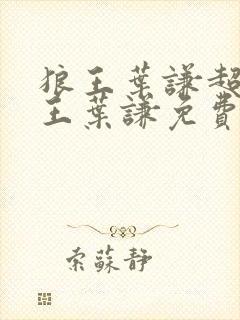 狼王葉謙超
王葉謙免費
索蘇靜